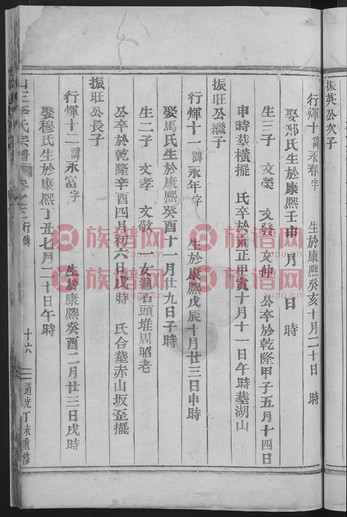 振英公次子
行煇十諱永春字 生於康熙癸亥十月二十日 時
娶鄧氏生於康熙壬申 月 日 時
生三子 文榮 文發 文仲 公卒於乾隆甲子五月十四日
申時墓橫擺 氏卒於雍正甲寅十月十一日午時墓湖山
振旺公繼子
行煇十一諱永年字 生於康熙戊辰十月廿三日申時
娶馬氏生於康熙癸酉十一月廿九日子時
生二子 文孝 文敬 一女適石頭堆周昭老
公卒於乾隆辛酉四月初六日戌時 氏合墓赤山坂歪擺
振旺公長子
行煇十二諱永富字 生於康熙癸酉二月廿三日戌時
娶穆氏生於康熙丁丑七月二十日午時
氏宗譜 卷之三 行傳 十六 道光丁未重修
族谱网
族谱网
族谱网
族谱网